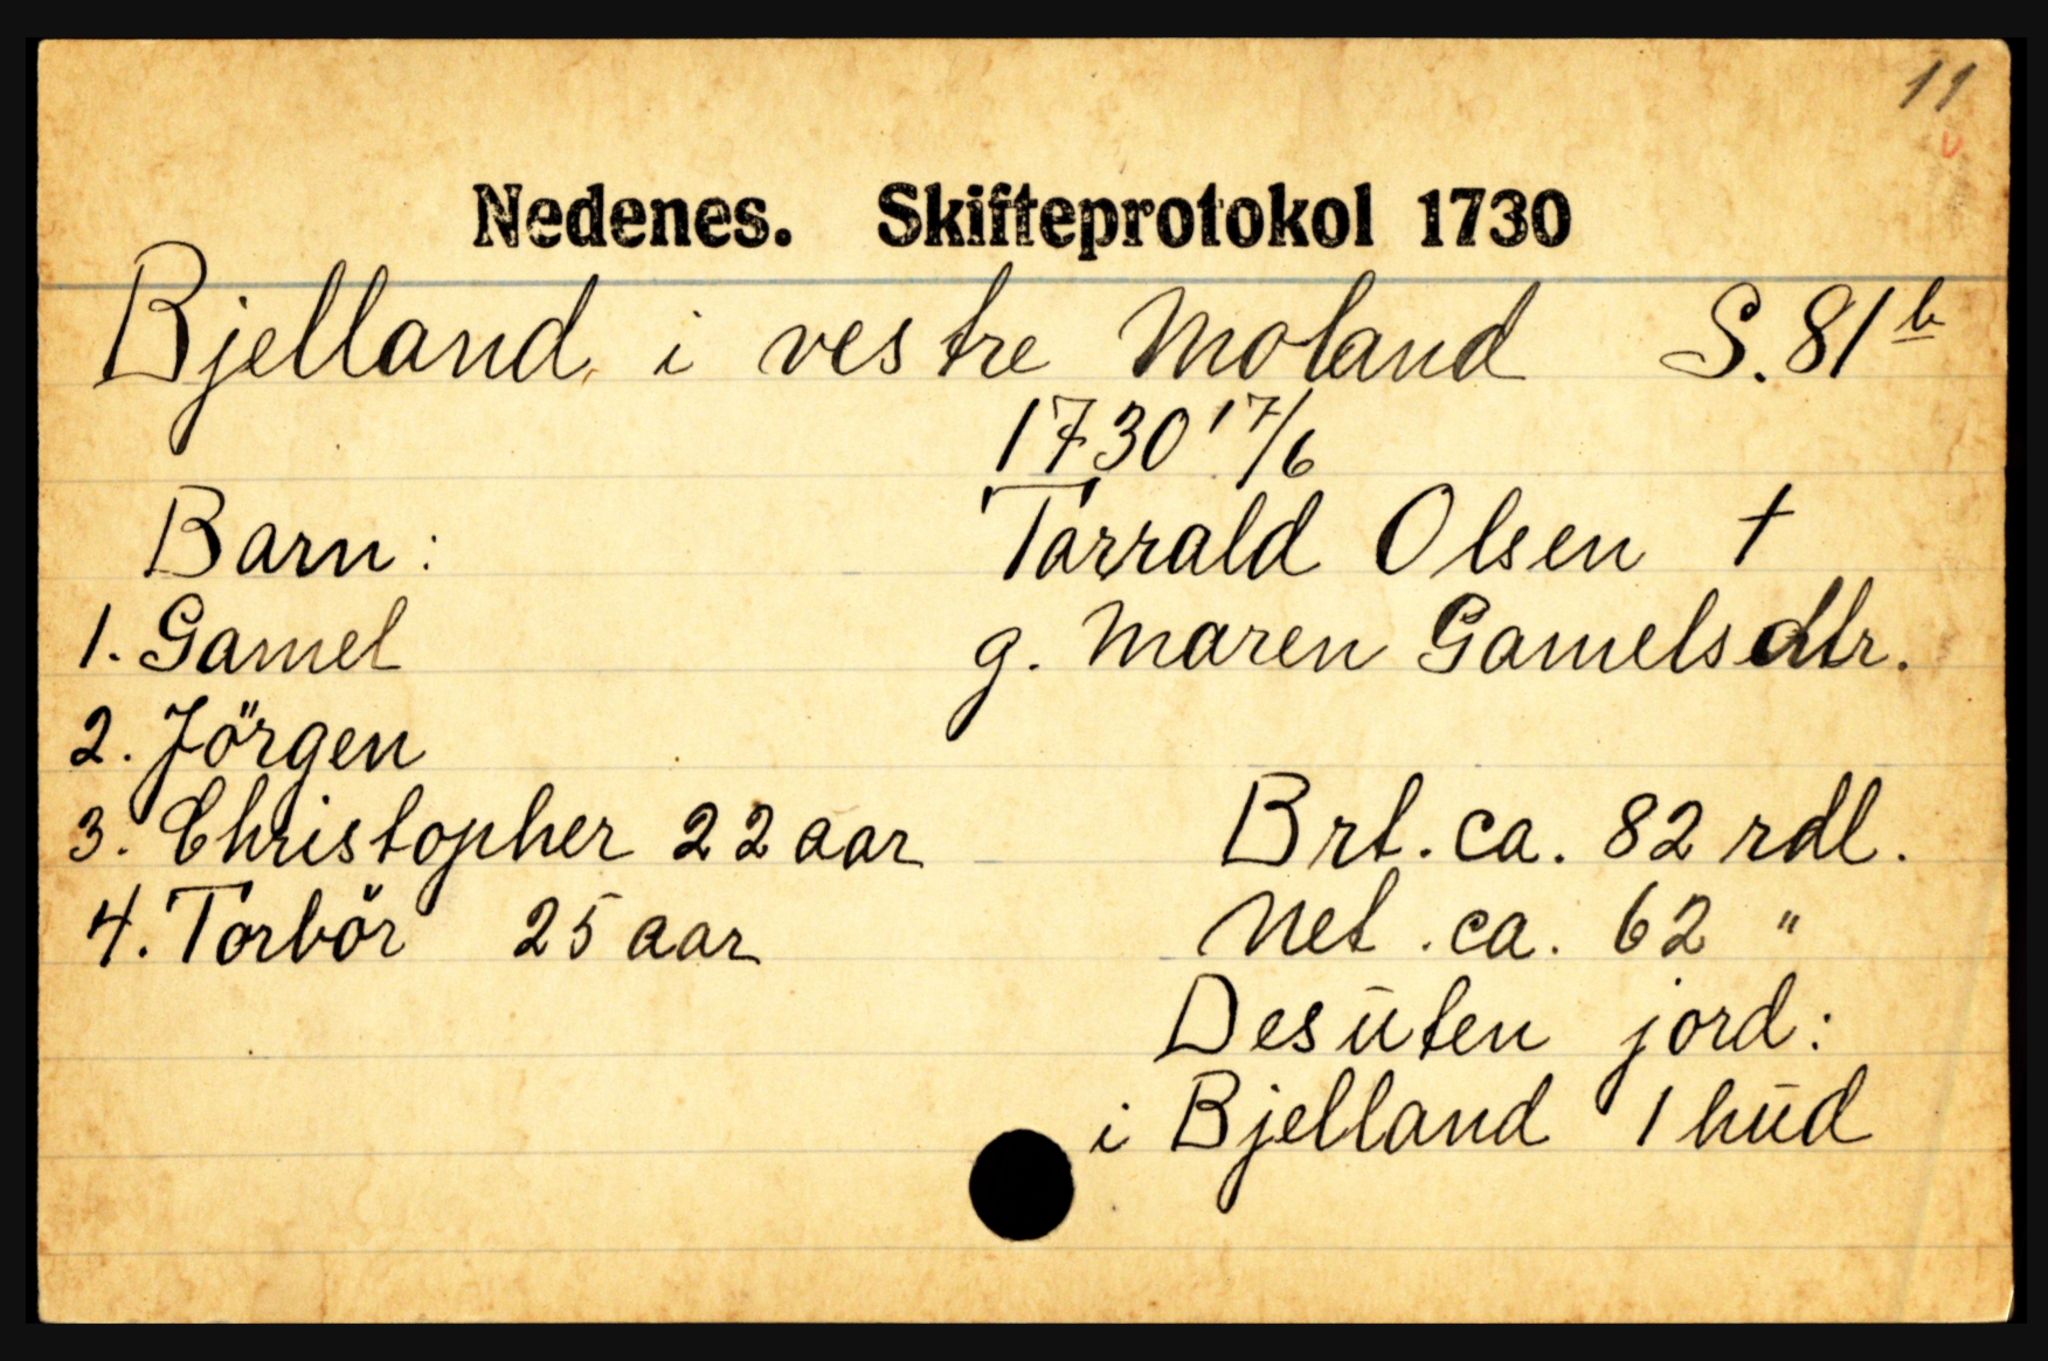 11
Nedenes. Skifteprotokol 1730
Bjelland i vestre Moland S. 81 b
1730 17/6
Barn: Tarrald Olsen †
1. Gamel g. Maren Gamelsdtr.
2. Jörgen
3. Christopher 22 aar Brt. ca. 82 rdl.
4. Torbör 25 aar Net. ca. 62 "
Desuten jord:
i Bjelland 1 hud